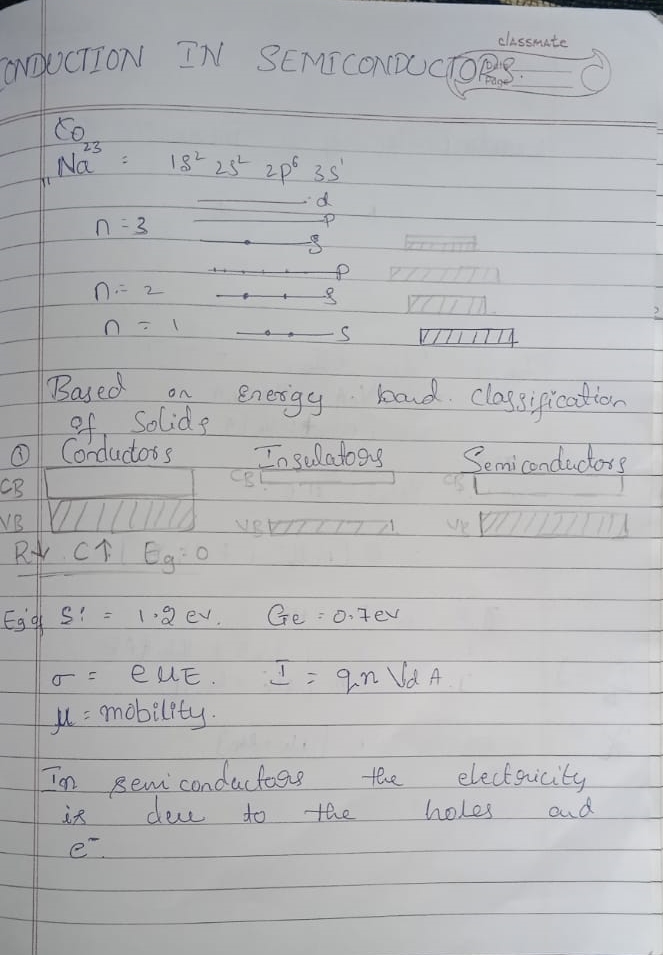 classmate
Date
Page
CONDUCTION IN SEMICONDUCTORS.
Na²³ : 1s² 2s² 2p⁶ 3s¹
11
d
n = 3 p
s
p
n = 2 s
n = 1 s
Based on energy band classification
of Solids
① Conductors Insulators Semiconductors
CB CB CB
VB VB VB
R↓ C↑ Eg = 0
Eg of Si = 1.2 ev. Ge = 0.7 ev
σ = eμE. I = qnVdA
μ = mobility.
In semiconductors the electricity
is due to the holes and
e⁻